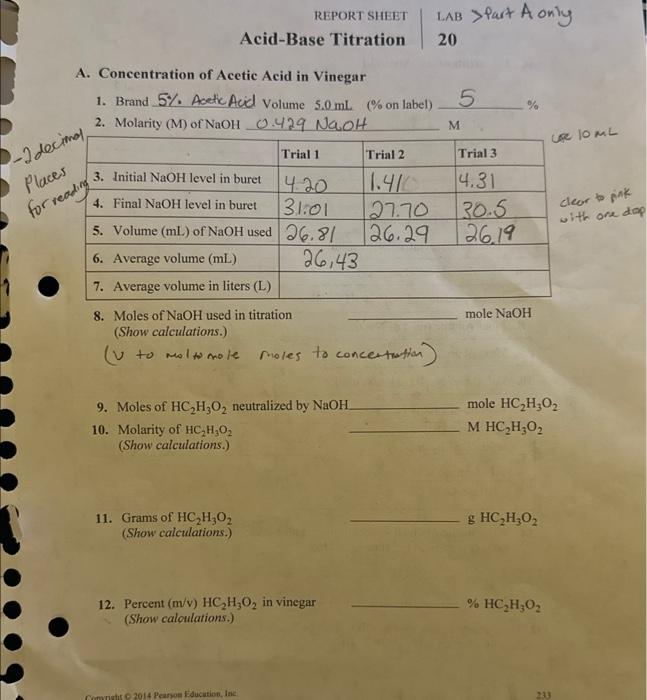 REPORT SHEET LAB >Part A only
Acid-Base Titration 20
A. Concentration of Acetic Acid in Vinegar
1. Brand 5% Acetic Acid Volume 5.0 mL (% on label) 5 %
2. Molarity (M) of NaOH 0.429 NaOH M
use 10 mL
-2 decimal
Places
for reading
Trial 1 Trial 2 Trial 3
3. Initial NaOH level in buret 4.20 1.41 4.31
4. Final NaOH level in buret 31.01 27.70 30.5
clear to pink
with one drop
5. Volume (mL) of NaOH used 26.81 26.29 26.19
6. Average volume (mL) 26,43
7. Average volume in liters (L)
8. Moles of NaOH used in titration mole NaOH
(Show calculations.)
(V to mol to mole moles to concentration)
9. Moles of HC₂H₃O₂ neutralized by NaOH mole HC₂H₃O₂
10. Molarity of HC₂H₃O₂ M HC₂H₃O₂
(Show calculations.)
11. Grams of HC₂H₃O₂ g HC₂H₃O₂
(Show calculations.)
12. Percent (m/v) HC₂H₃O₂ in vinegar % HC₂H₃O₂
(Show calculations.)
Copyright © 2014 Pearson Education, Inc. 233